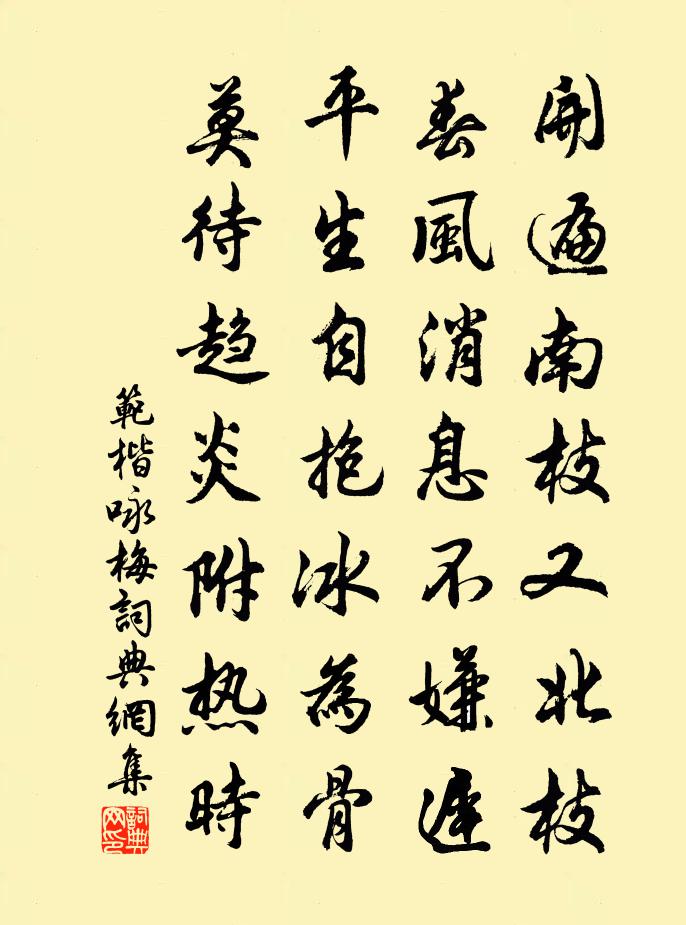 開遍南枝又北枝
春風消息不嫌遲
平生自抱冰為骨
莫待趨炎附热時
範楷咏梅詞典網集
詞典網印